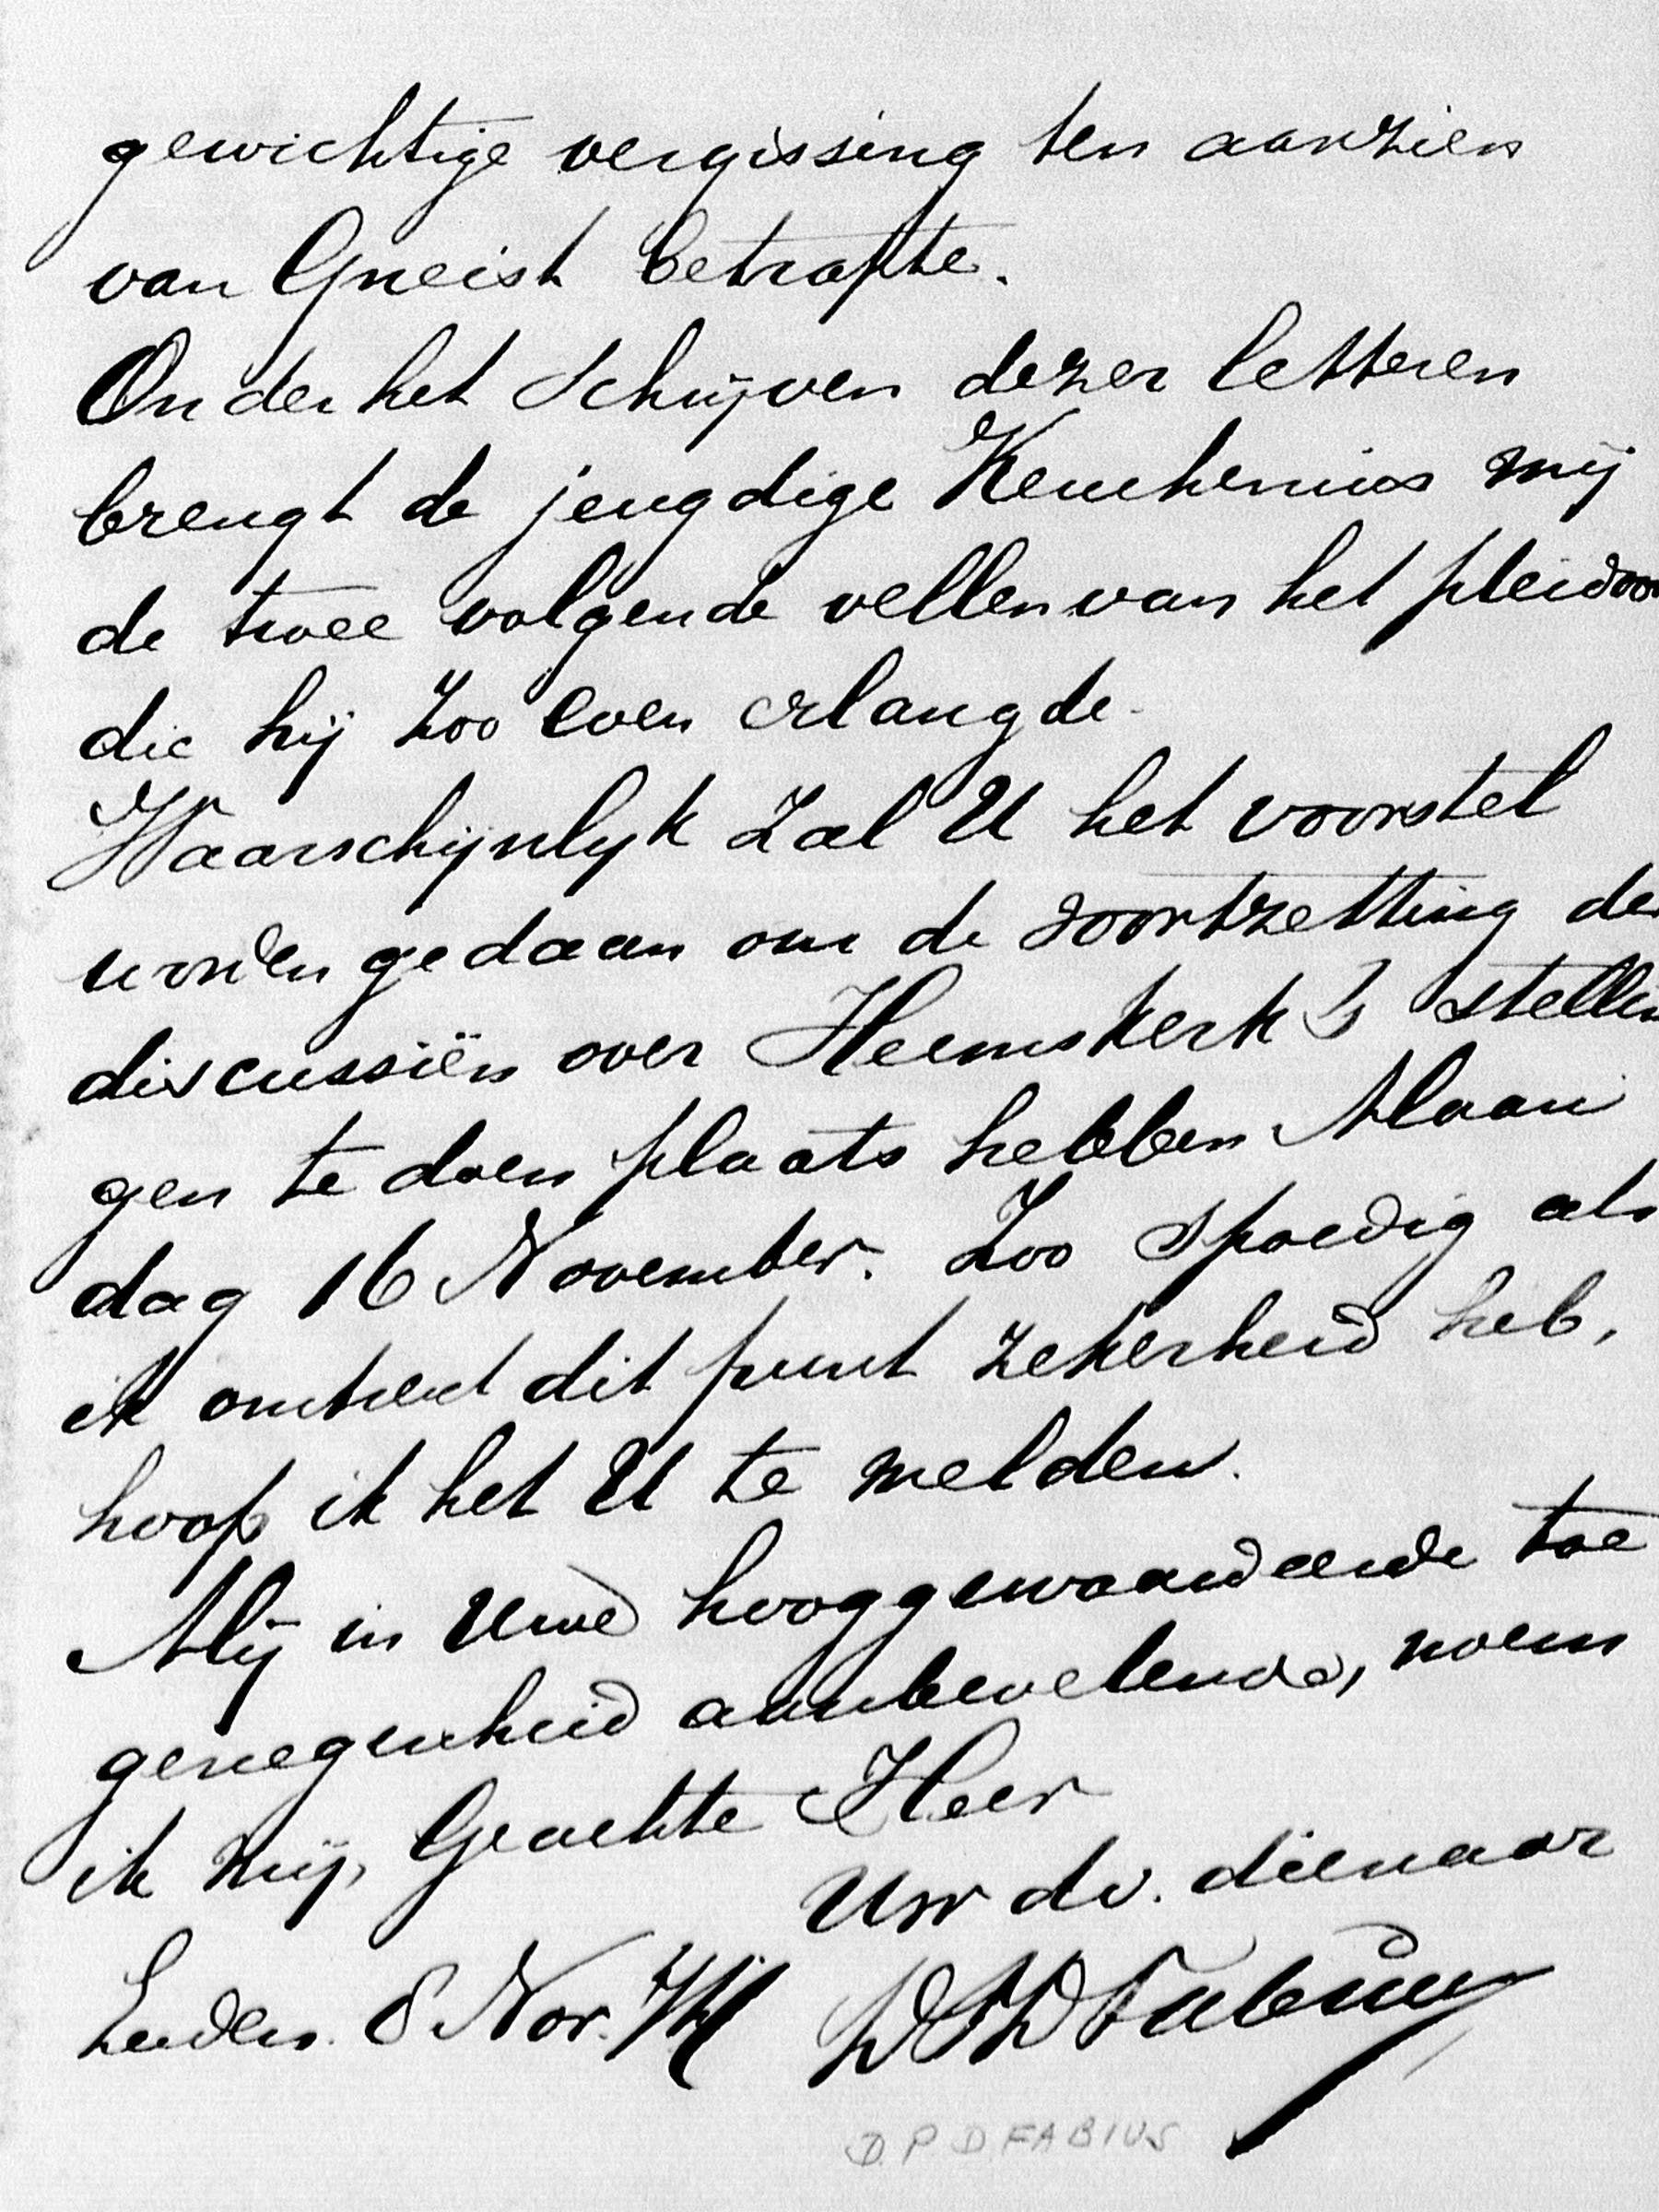 gewichtige vergissing ten aanzien
van Gneist betrapte.
Onder het schrijven dezer letteren
brengt de jeugdige Keuchenius mij
de twee volgende vellen van het pleidooi
die hij zoo even erlangde.
Waarschijnlyk zal U het voorstel
worden gedaan om de voortzetting der
discussiën over Heemskerk's stellin
gen te doen plaats hebben Maan
dag 16 November. Zoo spoedig als
ik omtrent dit punt zekerheid heb,
hoop ik het U te melden.
Mij in Uwe hooggewaardeerde toe
genegenheid aanbevelende, noem
ik mij, Geachte Heer
Uw dv. dienaar
Leiden. 8 Nov. DPDFabius
D. P. D. FABIUS